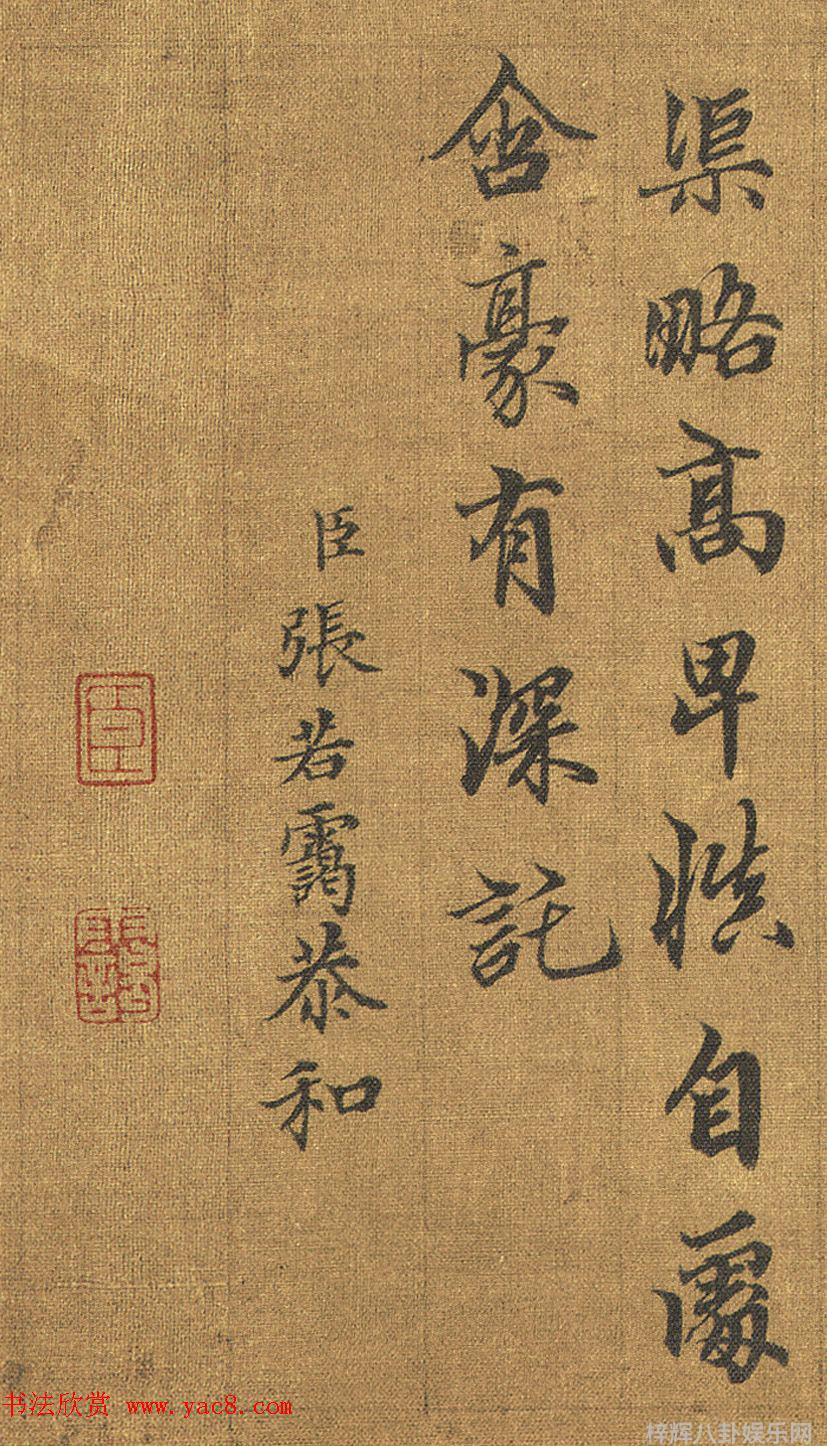 渠略高卑慎自處
含豪有深託
臣張若靄恭和
书法欣赏 www.yac8.com
梓辉八卦娱乐网